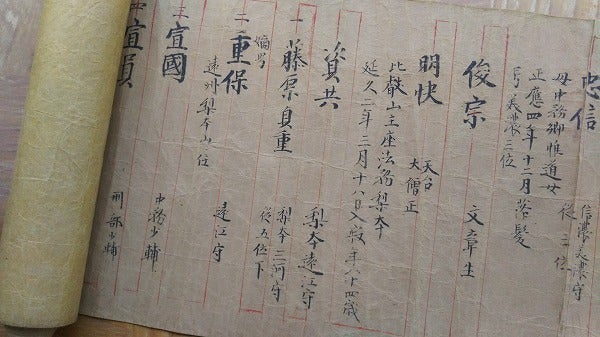 忠信 信濃美濃守
從三位
母中務卿惟道女
正應四年十二月落髪
号美濃三位
俊宗 文章生
明快 天台
大僧正
比叡山主座法務梨本
延久二年二月十八日入寂年八十四歳
資共 梨本遠江守
一藤原貞重 梨本三河守
從五位下
嫡男
二重保 遠江守
遠州梨本山位
三宣國 中務少輔
宣 刑部少輔